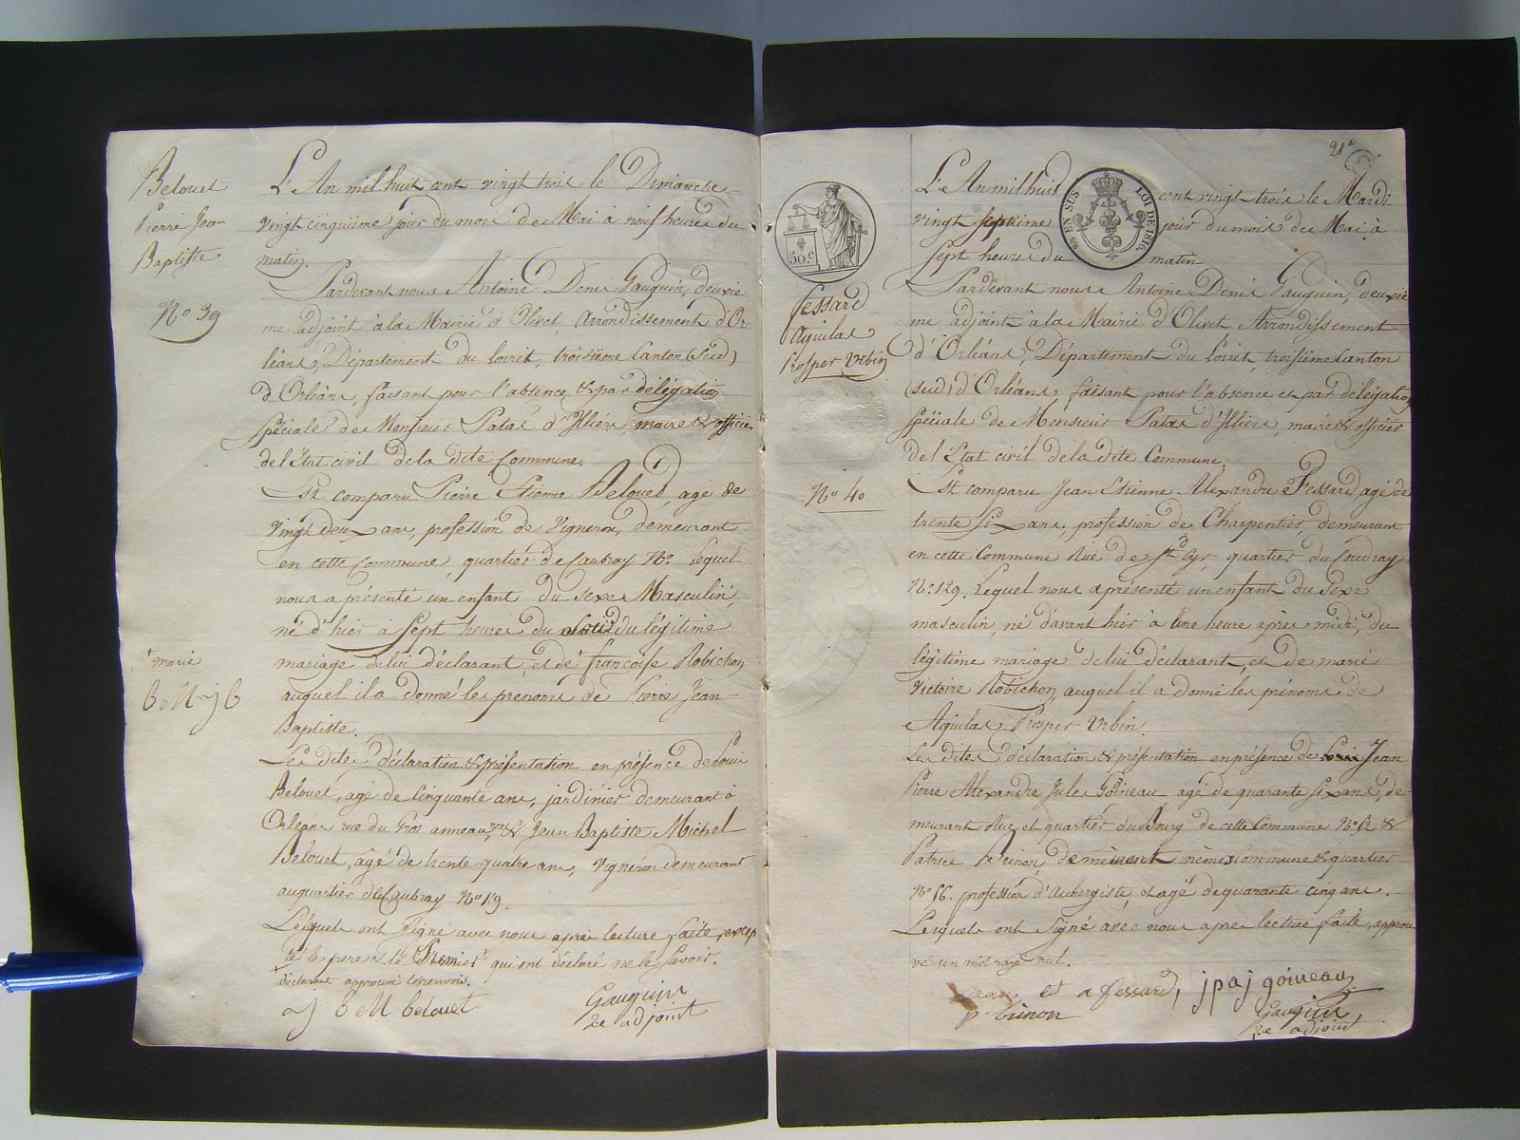 Belouet
Pierre Jean
Baptiste
No 39
L'An mil huit cent vingt trois le Dimanche
vingt cinquiéme jour du mois de Mai à neuf heures du
matin.
Pardevant nous Antoine Denis Gauguin, deuxié
me adjoint à la Mairie d'Olivet, Arrondissement d'Or
léans, Département du Loiret, troisième Canton (Sud)
d'Orléans, faisant pour l'absence & par délégation
Spéciale de Monsieur Patas d'Illiers, maire & officier
de l'Etat civil de la dite Commune.
Est comparu Pierre Etienne Belouet, agé de
vingt deux ans, profession de Vigneron, demeurant
en cette Commune, quartier de Caubray No. Lequel
nous a présenté un enfant du Sexe Masculin,
né d'hier à Sept heures du du légitime
mariage de lui déclarant, et de françoise Robichon
auquel il a donné les prénoms de Pierre Jean
Baptiste.
marié
Les dites déclaration & présentation en présence de Louis
Belouet, agé de Cinquante ans, jardinier demeurant à
Orléans rue du Gros anneau, & Jean Baptiste Michel
Belouet, âgé de trente quatre ans, vigneron demeurant
au quartier de Caubray No 19.
Lesquels ont Signé avec nous après lecture faite, excep
té le pere & le Premier qui ont déclaré ne le Savoir.
déclarant approuvé
J B M belouet
Gauguin
2e adjoint
21e
50 c
EN SUS
LOI DE 1816
fessard
Aquilas
Prosper Urbin
No 40
L'An mil huit cent vingt trois le Mardi
vingt septieme jour du mois de Mai à
Sept heures du matin
Pardevant nous Antoine Denis Gauguin, deuxiè
me adjoint à la Mairie d'Olivet Arrondissement
d'Orléans, Département du Loiret, troisième Canton
(sud) d'Orléans, faisant pour l'absence et par délégation
Spéciale de Monsieur Patas d'Illiers, maire & officier
de l'Etat civil de la dite Commune,
Est comparu Jean Etienne Alexandre Fessard, agé de
trente Six ans, profession de Charpentier, demeurant
en cette Commune Rue de St Cyr quartier du Coudray
No 129. Lequel nous a présenté un enfant du Sexe
masculin, né d'avant hier à Une heure après midi, du
légitime mariage de lui déclarant, et de marie
Victoire Robichon auquel il a donné les prénoms de
Aquilas Prosper Urbin.
Les dites déclaration & présentation en présence de Jean
Pierre Alexandre Jules Goineau agé de quarante Six ans, de
meurant Rue et quartier du Bourg de cette Commune No 52 &
Patrice demeurant même commune & quartier
No 56. profession d'Aubergiste, et agé de quarante cinq ans.
Lesquels ont Signé avec nous après lecture faite, approu
vé un mot rayé nul.
et a fessard, j p a j goineau
Gauguin
2e adjoint